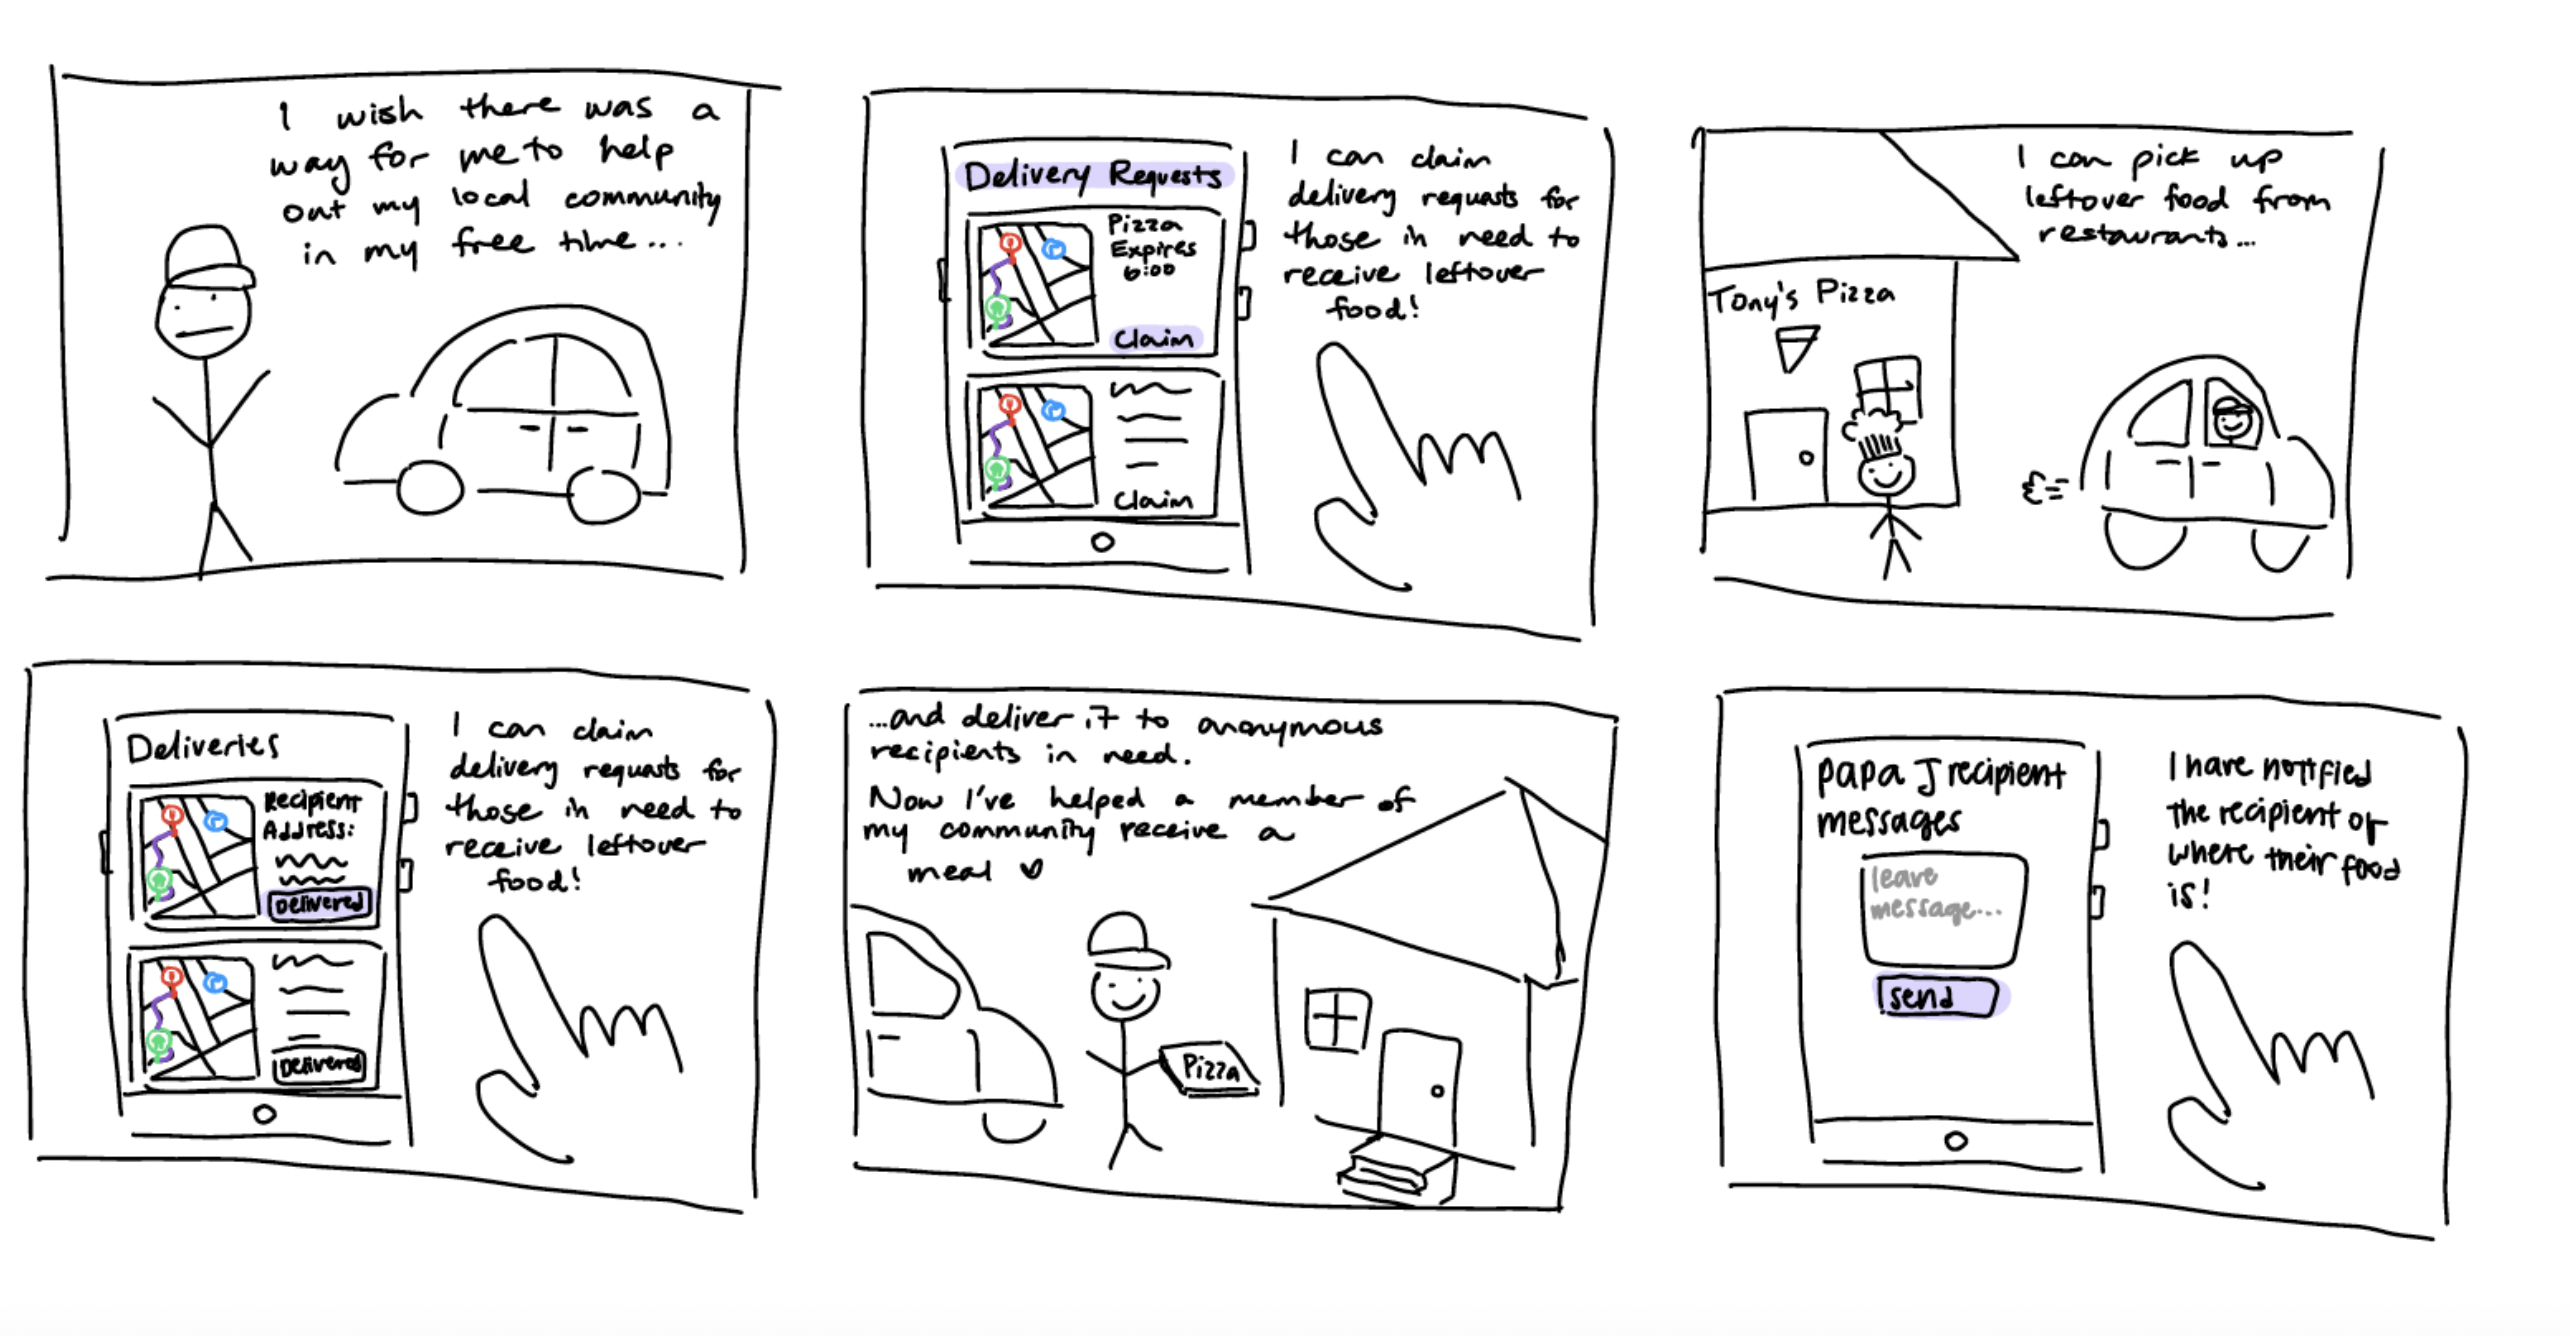 I wish there was a
way for me to help
out my local community
in my free time...
Delivery Requests
Pizza
Expires
6:00
Claim
Claim
I can claim
delivery requests for
those in need to
receive leftover
food!
I can pick up
leftover food from
restaurants...
Tony's Pizza
Deliveries
Recipient
Address:
Delivered
Delivered
I can claim
delivery requests for
those in need to
receive leftover
food!
...and deliver it to anonymous
recipients in need.
Now I've helped a member of
my community receive a
meal
Pizza
Papa J recipient
messages
leave
message...
send
I have notified
the recipient of
where their food
is!